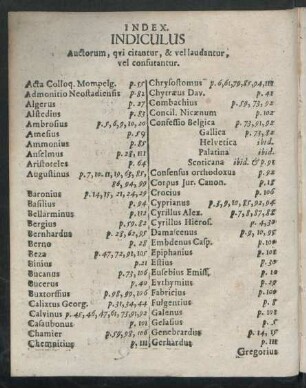 INDEX.
INDICULUS
Auctorum, qvi citantur, & vel laudantur,
vel confutantur.
Acta Colloq. Mompelg. p. 57
Admonitio Neostadiensis p. 52
Algerus p. 27
Alstedius p. 85
Ambrosius p. 5, 6, 9, 10, 20
Amesius p. 59
Ammonius p. 85
Anselmus p. 28, 111
Aristoteles p. 64
Augustinus p. 7, 10, 11, 65, 85,
86, 94, 96
Baronius p. 14, 15, 21, 24, 29
Basilius p. 94
Bellarminus p. 111
Bergius p. 59, 82
Bernhardus p. 28, 62, 95
Berno p. 28
Beza p. 47, 72, 91, 105
Binius p. 21
Bucanus p. 73, 106
Bucerus p. 40
Buxtorfius p. 98, 99, 106
Calixtus Georg. p. 31, 34, 44
Calvinus p. 45, 46, 47, 61, 75, 91, 92
Casaubonus p. 101
Chamier p. 59, 98, 106
Chemnitius p. 111
Chrysostomus p. 6, 61, 79, 85, 94, 112
Chytræus Dav. p. 48
Combachius p. 59, 73, 92
Concil. Nicænum p. 102
Confessio Belgica p. 73, 91, 92
Gallica p. 73, 82
Helvetica ibid.
Palatina ibid.
Scoticana ibid. & p. 91
Consensus orthodoxus p. 92
Corpus Jur. Canon. p. 18
Crocius p. 106
Cyprianus p. 5, 9, 10, 85, 92, 94
Cyrillus Alex. p. 7, 8, 87, 88
Cyrillus Hieros. p. 4, 30
Damascenus p. 9, 10, 95
Embdenus Casp. p. 100
Epiphanius p. 102
Estius p. 30
Eusebius Emiss. p. 10
Euthymius p. 29
Fabricius p. 100
Fulgentius p. 8
Galenus p. 101
Gelasius p. 5
Genebrardus p. 14, 15
Gerhardus p. 111
Gregorius